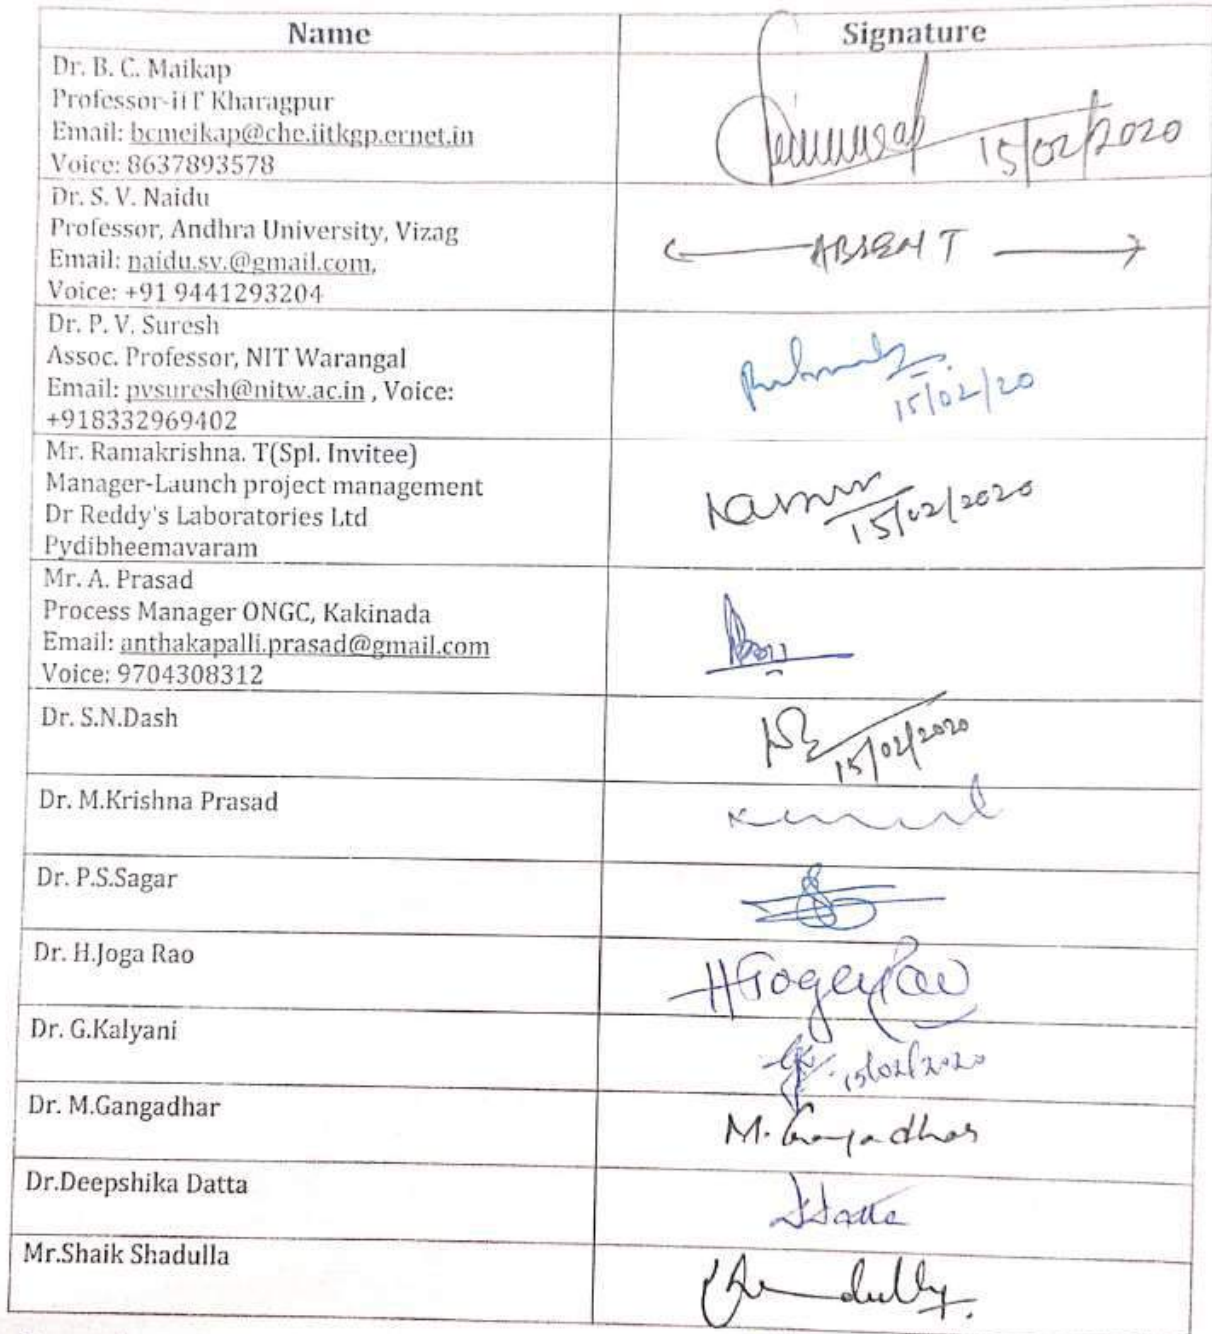 Name Signature
Dr. B. C. Maikap
Professor-iIT Kharagpur
Email: bcmeikap@che.iitkgp.ernet.in
Voice: 8637893578
15/02/2020
Dr. S. V. Naidu
Professor, Andhra University, Vizag
Email: naidu.sv.@gmail.com,
Voice: +91 9441293204
ABSENT
Dr. P. V. Suresh
Assoc. Professor, NIT Warangal
Email: pvsuresh@nitw.ac.in , Voice:
+918332969402
15/02/20
Mr. Ramakrishna. T(Spl. Invitee)
Manager-Launch project management
Dr Reddy's Laboratories Ltd
Pydibheemavaram
15/02/2020
Mr. A. Prasad
Process Manager ONGC, Kakinada
Email: anthakapalli.prasad@gmail.com
Voice: 9704308312
Dr. S.N.Dash
15/02/2020
Dr. M.Krishna Prasad
Dr. P.S.Sagar
Dr. H.Joga Rao
HJogaRao
Dr. G.Kalyani
15/02/2020
Dr. M.Gangadhar
M. Gangadhar
Dr.Deepshika Datta
Mr.Shaik Shadulla